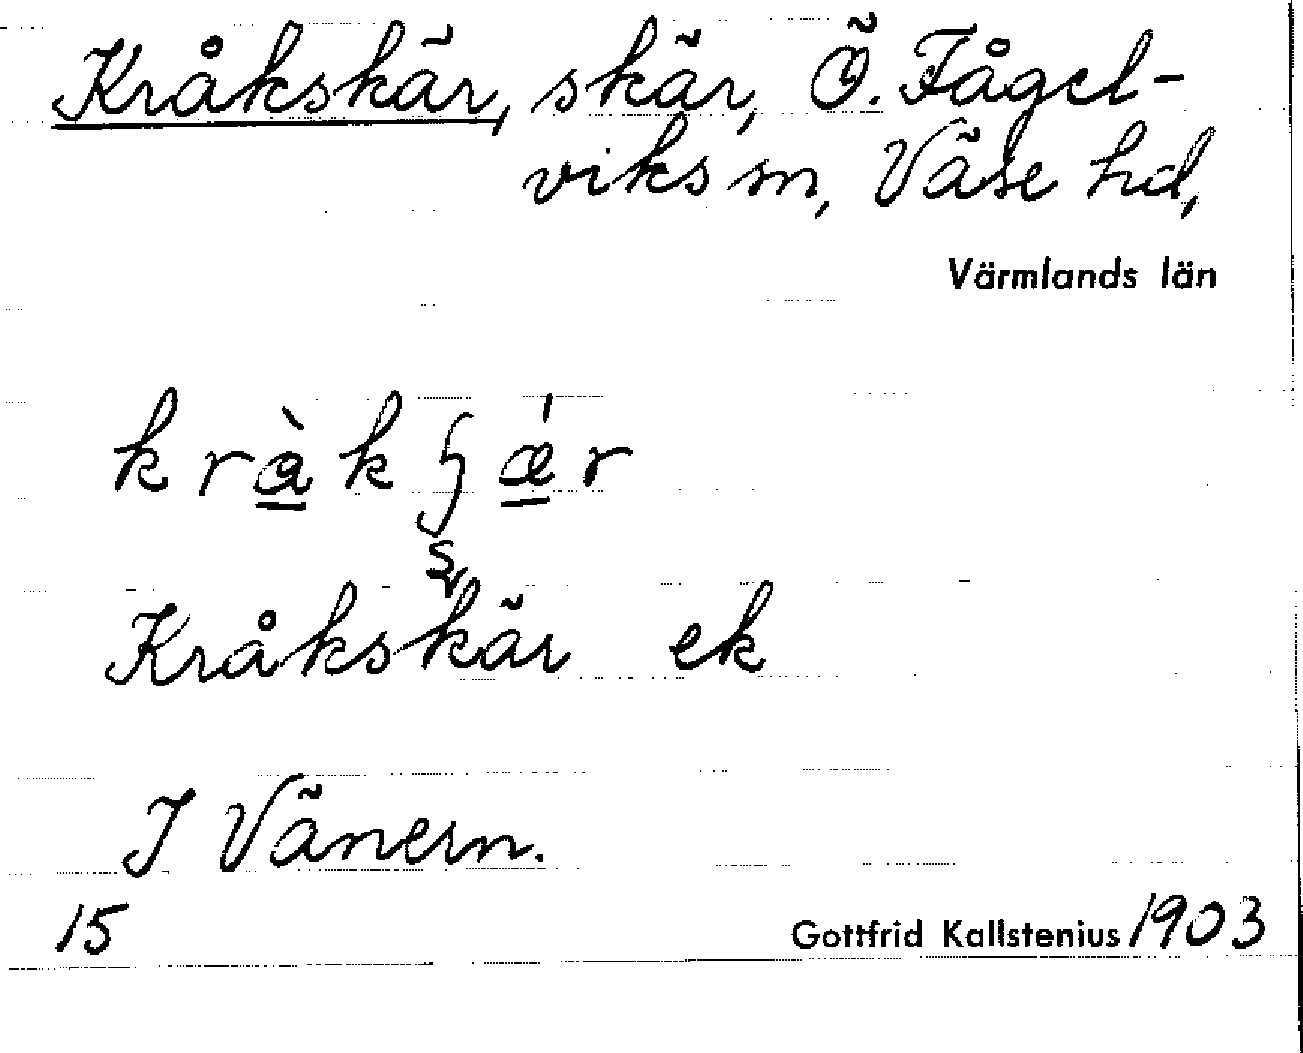 Kråkskär, skär, Ö. Fågel-
viks sn, Väse hd,
Värmlands län
kràkʃǽr
s
Kråkskär ek
I Vänern.
15
Gottfrid Kallstenius 1903